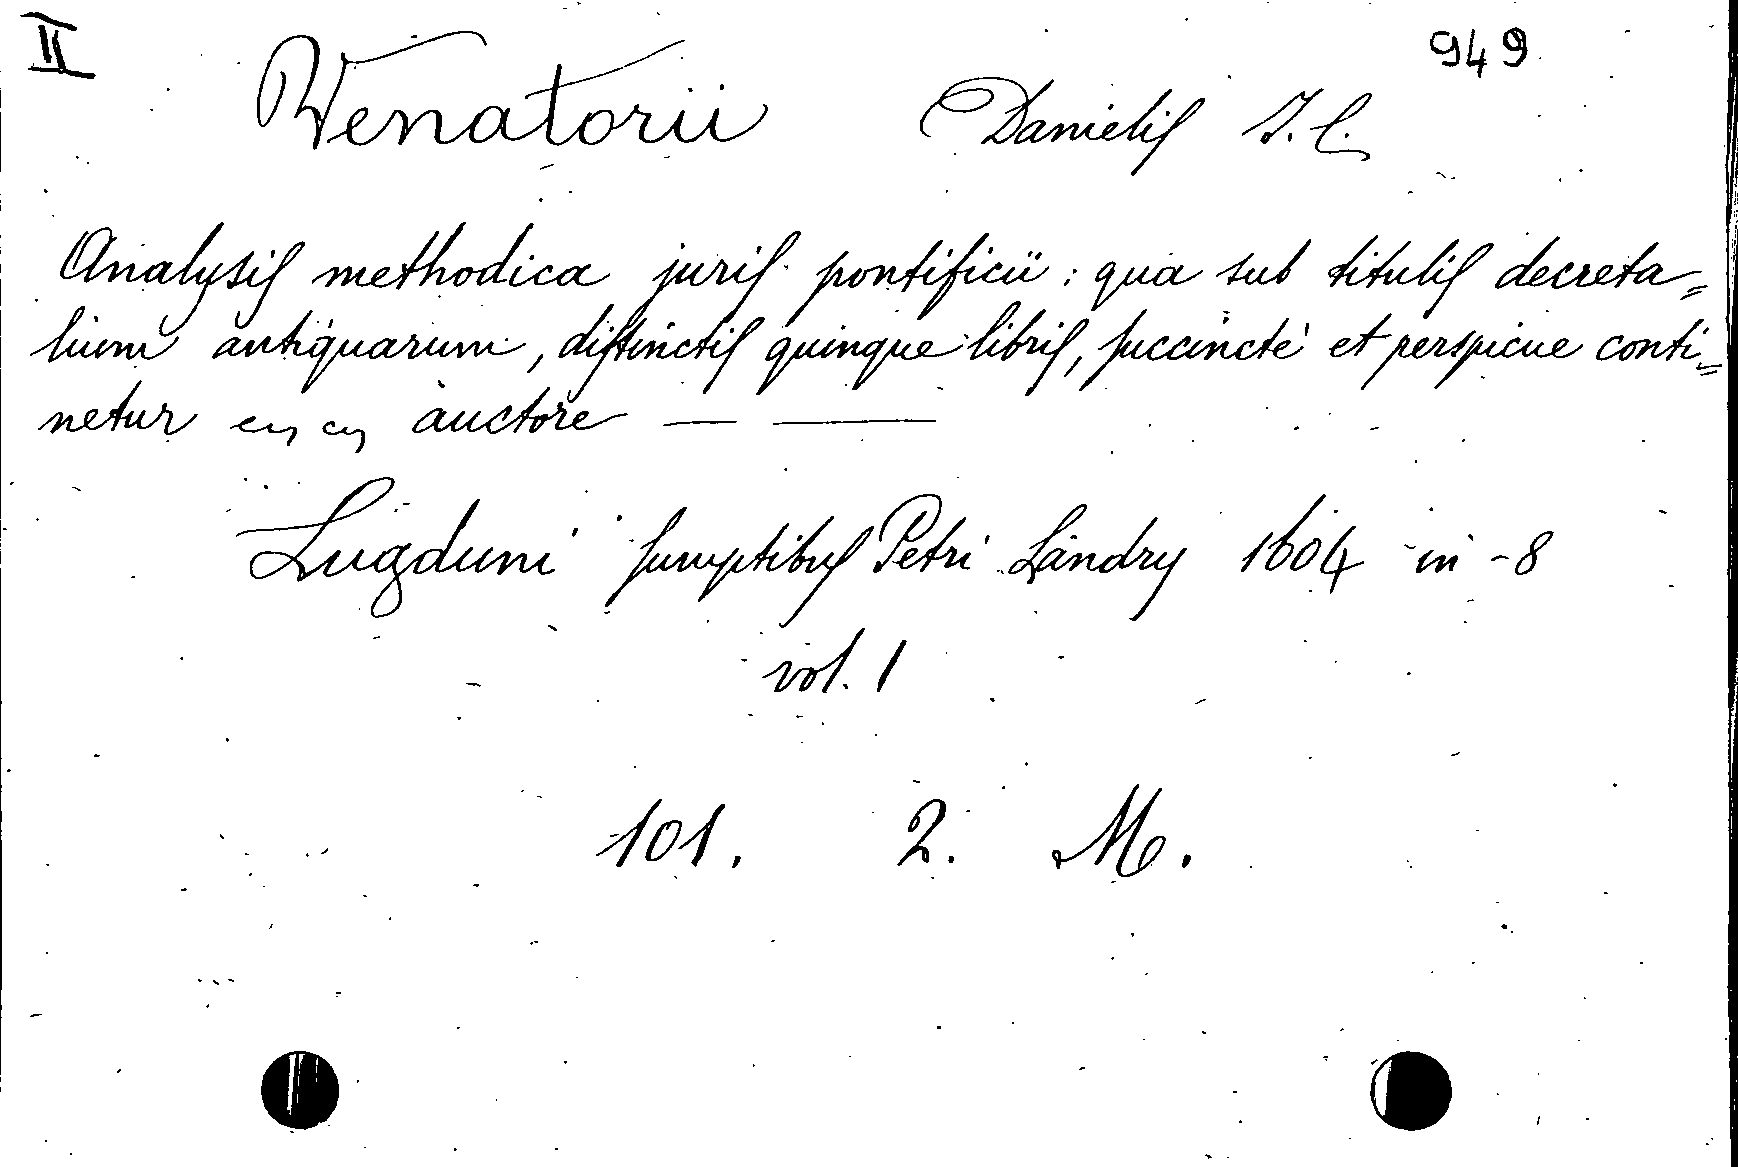 II
949
Venatorii Danielis J. C.
Analysis methodica juris pontificii : qua sub titulis decreta=
lium antiquarum, distinctis quinque libris, succinctè et perspicue conti=
netur auctore — —
Lugduni sumptibus Petri Landry 1604 in-8
vol. 1
101. 2. M.